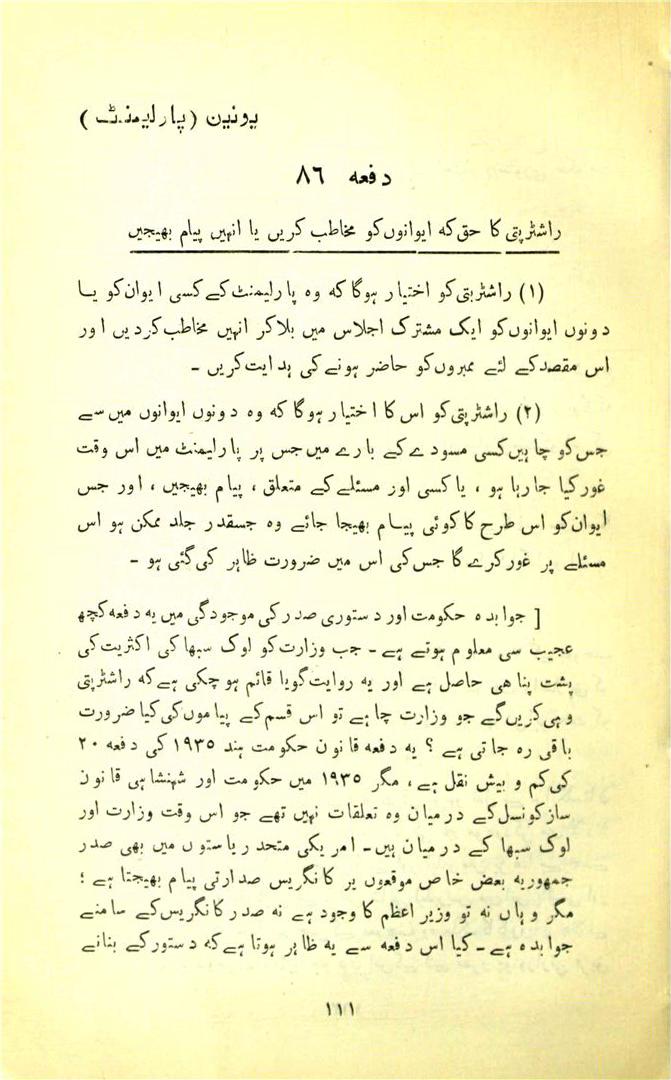 یونین (پارلیمنٹ)
دفعہ ۸۶
راشٹرپتی کا حق کہ ایوانوں کو مخاطب کریں یا انہیں پیام بھیجیں
(۱) راشٹرپتی کو اختیار ہوگا کہ وہ پارلیمنٹ کے کسی ایوان کو یا
دونوں ایوانوں کو ایک مشترک اجلاس میں بلاکر انہیں مخاطب کردیں اور
اس مقصد کے لئے ممبروں کو حاضر ہونے کی ہدایت کریں ۔
(۲) راشٹرپتی کو اس کا اختیار ہوگا کہ وہ دونوں ایوانوں میں سے
جس کو چاہیں کسی مسودے کے بارے میں جس پر پارلیمنٹ میں اس وقت
غور کیا جا رہا ہو ، یا کسی اور مسئلے کے متعلق ، پیام بھیجیں ، اور جس
ایوان کو اس طرح کا کوئی پیام بھیجا جائے وہ جسقدر جلد ممکن ہو اس
مسئلے پر غور کرے گا جس کی اس میں ضرورت ظاہر کی گئی ہو ۔
[ جوابدہ حکومت اور دستوری صدر کی موجودگی میں یہ دفعہ کچھ
عجیب سی معلوم ہوتے ہے ۔ جب وزارت کو لوک سبھا کی اکثریت کی
پشت پناہی حاصل ہے اور یہ روایت گویا قائم ہو چکی ہے کہ راشٹرپتی
وہی کریں گے جو وزارت چاہے تو اس قسم کے پیاموں کی کیا ضرورت
باقی رہ جاتی ہے ؟ یہ دفعہ قانون حکومت ہند ۱۹۳۵ کی دفعہ ۲۰
کی کم و بیش نقل ہے ، مگر ۱۹۳۵ میں حکومت اور شہنشاہی قانون
ساز کونسل کے درمیان وہ تعلقات نہیں تھے جو اس وقت وزارت اور
لوک سبھا کے درمیان ہیں ۔ امریکی متحد ریاستوں میں بھی صدر
جمہوریہ بعض خاص موقعوں پر کانگریس صدارتی پیام بھیجتا ہے ؛
مگر وہاں نہ تو وزیر اعظم کا وجود ہے نہ صدر کانگریس کے سامنے
جوابدہ ہے ۔ کیا اس دفعہ سے یہ ظاہر ہوتا ہے کہ دستور کے بنانے
۱۱۱